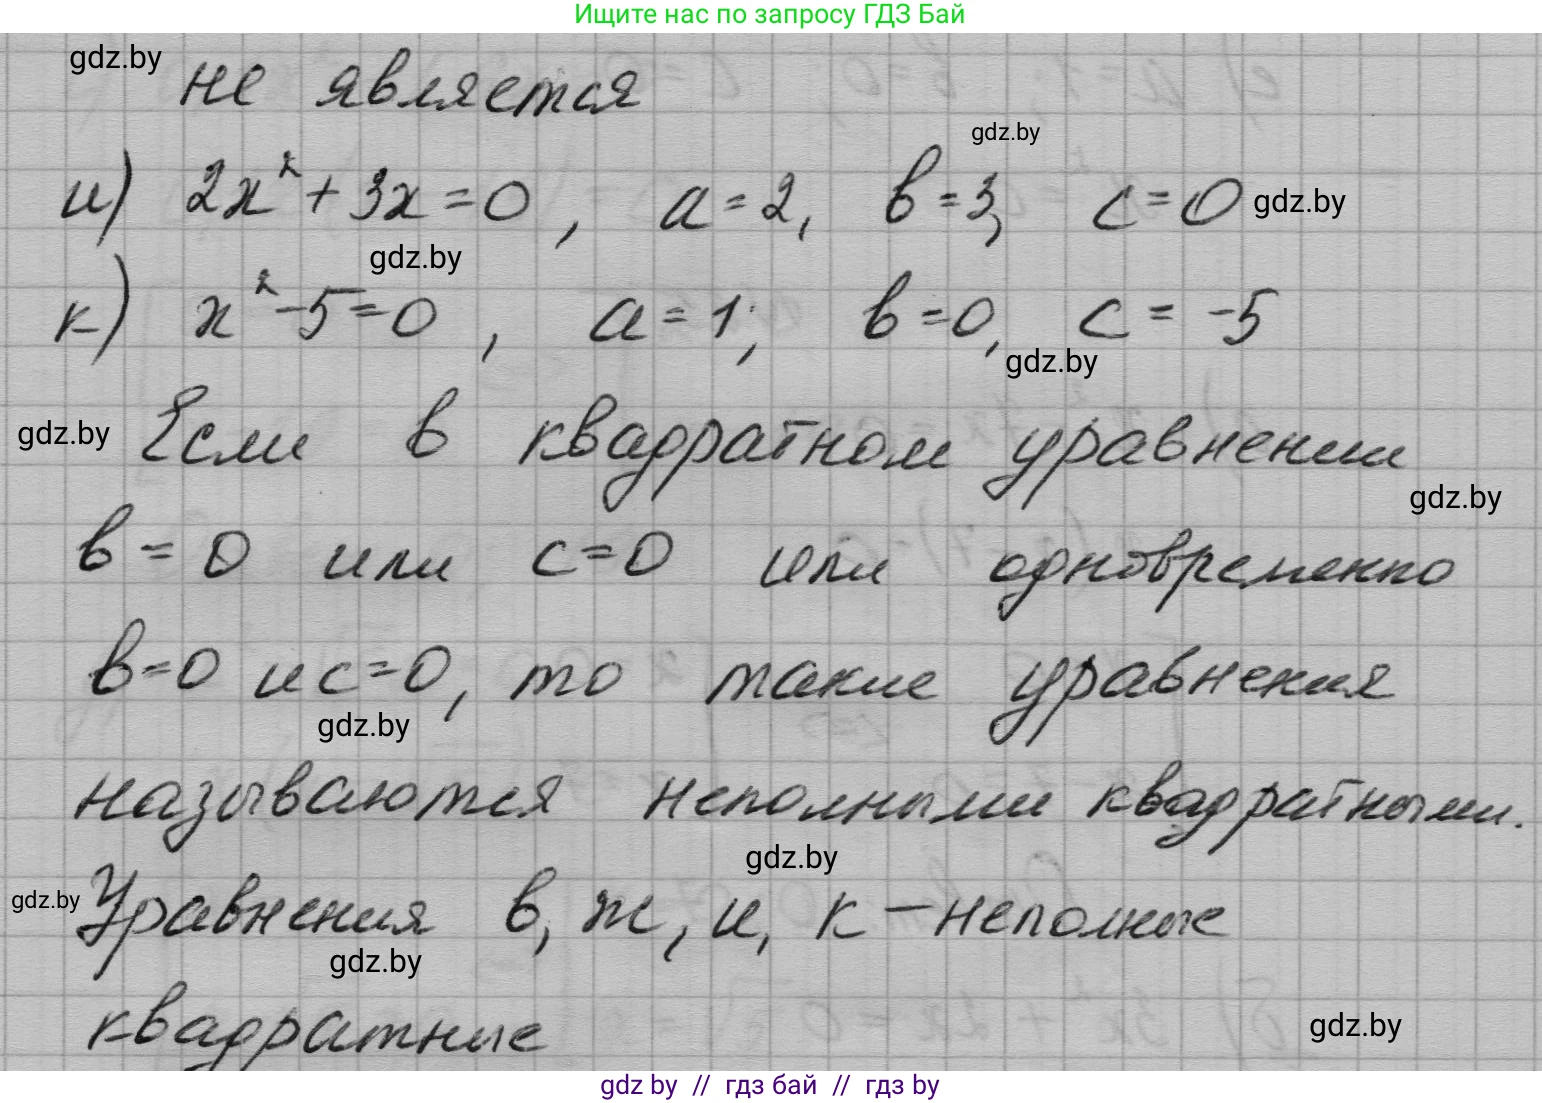 Ищите нас по запросу ГДЗ Бай
gdz.by
не является
gdz.by
и) 2x² + 3x = 0, a = 2, в = 3, c = 0 gdz.by
gdz.by
к) x² - 5 = 0, a = 1, в = 0, c = -5
gdz.by
gdz.by Если в квадратном уравнении
gdz.by
в = 0 или c = 0 или одновременно
в = 0 и c = 0, то такие уравнения
gdz.by
называются неполными квадратными.
gdz.by
gdz.by Уравнения в, ж, и, к - неполные
gdz.by
квадратные
gdz.by
gdz by // гдз бай // гдз by